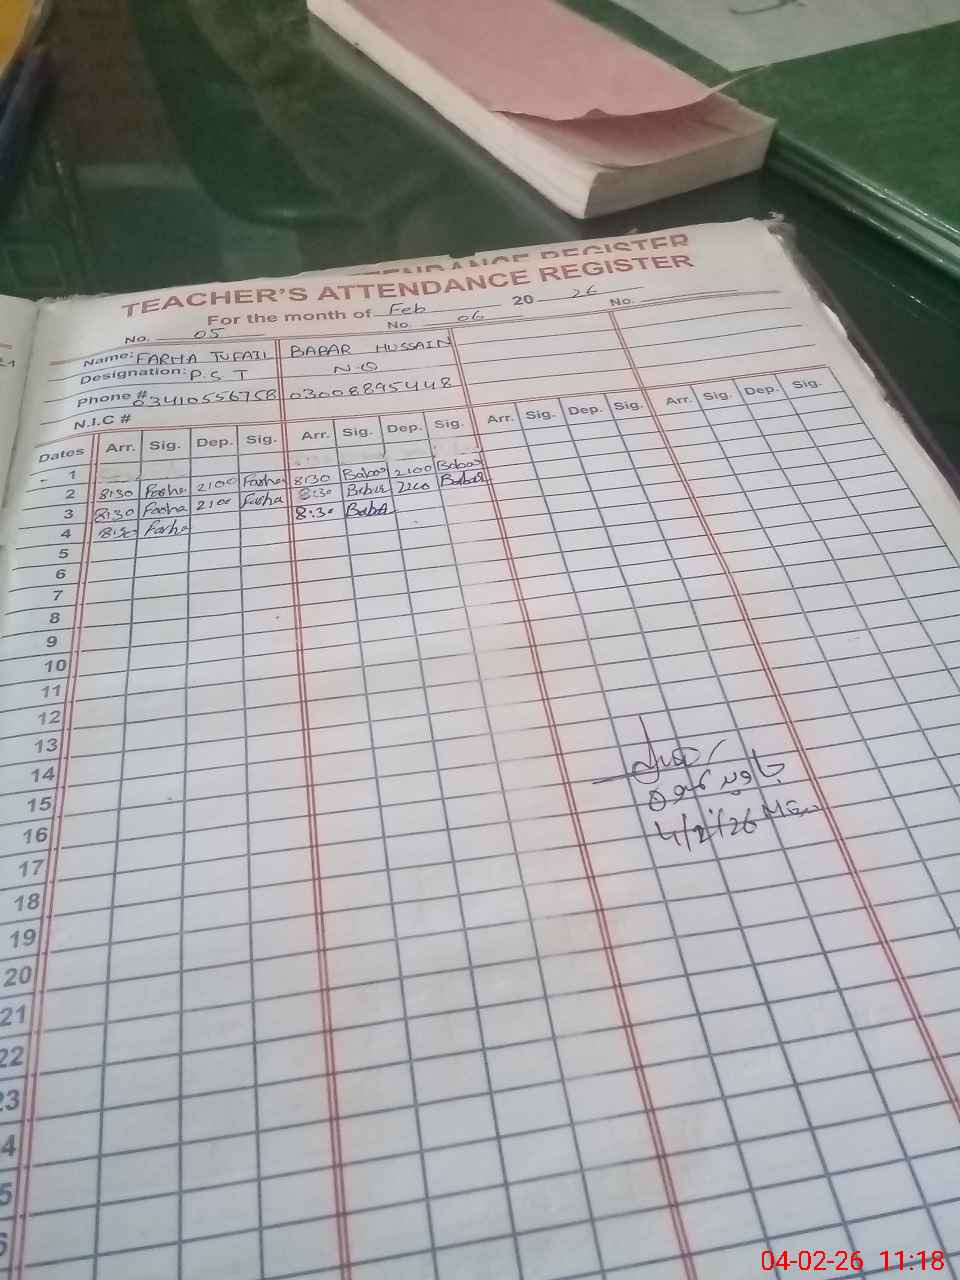 TEACHER'S ATTENDANCE REGISTER
For the month of Feb 20 26
No. 05 No. 06 No.
Name: FARHA TUFAIL BABAR HUSSAIN
Designation: P.S.T N-Q
Phone # 03410556758 03008895448
N.I.C #
Dates Arr. Sig. Dep. Sig. Arr. Sig. Dep. Sig. Arr. Sig. Dep. Sig. Arr. Sig. Dep. Sig.
1
2 8:30 Farha 2:00 Farha 8:30 Babar 2:00 Babar
3 8:30 Farha 2:00 Farha 8:30 Babar 2:00 Babar
4 8:30 Farha 8:30 Babar
5
6
7
8
9
10
11
12
13
14
15
16
17
18
19
20
21
22
23
4
5
6
4/2/26
04-02-26 11:18